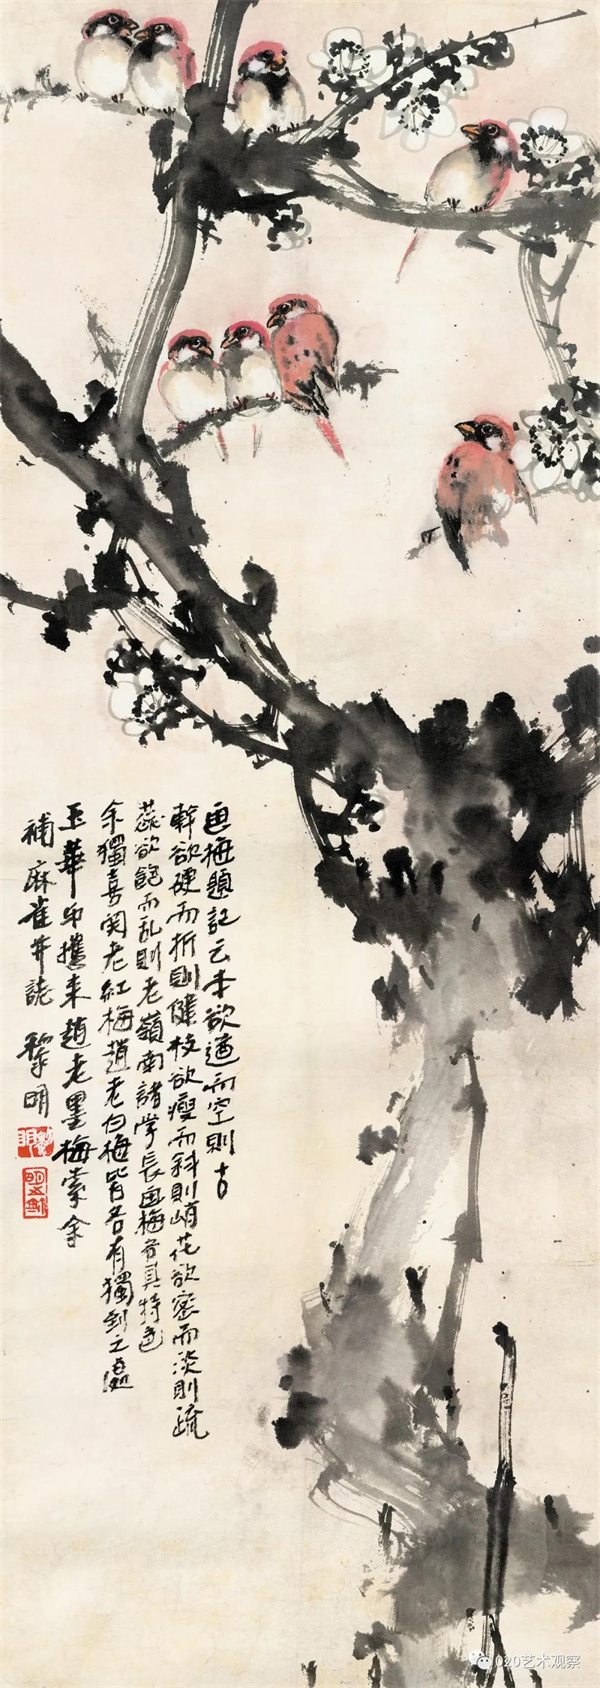 画梅题记云本欲遒而空则古
幹欲硬而折則健枝欲瘦而斜則峭花欲密而淡則疏
蕊欲飽而乱則老嶺南諸学長画梅各具特色
余獨喜関老紅梅趙老白梅皆各有獨到之處
玉華印攜来趙老墨梅索余
補麻雀并誌 黎明
020艺术观察